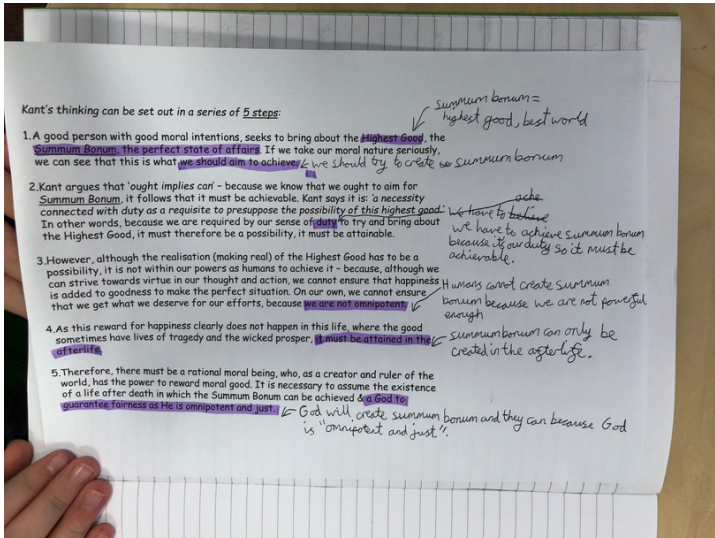 Kant's thinking can be set out in a series of 5 steps:
summum bonum =
highest good, best world
1.A good person with good moral intentions, seeks to bring about the Highest Good, the
Summum Bonum, the perfect state of affairs. If we take our moral nature seriously,
we can see that this is what we should aim to achieve.
we should try to create summum bonum
2.Kant argues that 'ought implies can' – because we know that we ought to aim for
Summum Bonum, it follows that it must be achievable. Kant says it is: 'a necessity
connected with duty as a requisite to presuppose the possibility of this highest good.'
In other words, because we are required by our sense of duty to try and bring about
the Highest Good, it must therefore be a possibility, it must be attainable.
ache
We have to believe
we have to achieve summum bonum
because it our duty so it must be
achievable.
3.However, although the realisation (making real) of the Highest Good has to be a
possibility, it is not within our powers as humans to achieve it – because, although we
can strive towards virtue in our thought and action, we cannot ensure that happiness
is added to goodness to make the perfect situation. On our own, we cannot ensure
that we get what we deserve for our efforts, because we are not omnipotent.
Humans cannot create summum
bonum because we are not powerful
enough
4.As this reward for happiness clearly does not happen in this life, where the good
sometimes have lives of tragedy and the wicked prosper, it must be attained in the
afterlife.
summum bonum can only be
created in the afterlife.
5.Therefore, there must be a rational moral being, who, as a creator and ruler of the
world, has the power to reward moral good. It is necessary to assume the existence
of a life after death in which the Summum Bonum can be achieved & a God to
guarantee fairness as He is omnipotent and just.
God will create summum bonum and they can because God
is "omnipotent and just".